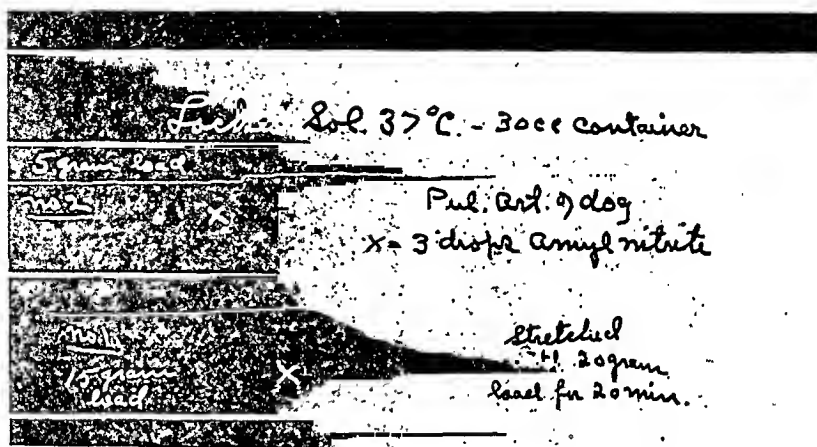 Sol. 37°C. - 30cc container
5 gram load
no. 2 X
Pul. Art. of dog
X - 3 drops amyl nitrite
no. 1
15 gram
load
X
Stretched
20 gram
load for 20 min.